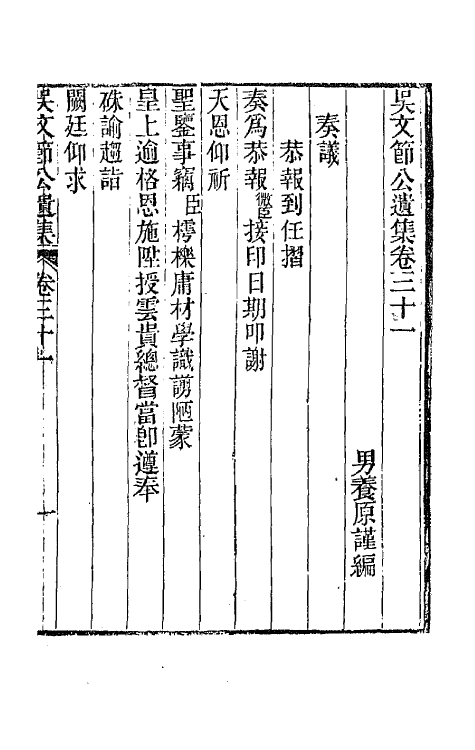 吳文節公遺集卷三十一
男養原謹編
奏議
恭報到任摺
奏爲恭報微臣接印日期叩謝
天恩仰祈
聖鑒事竊臣樗櫟庸材學識譾陋蒙
皇上逾格恩施陞授雲貴總督當卽遵奉
硃諭趨詣
闕廷仰求
吳文節公遺集 卷三十一 一